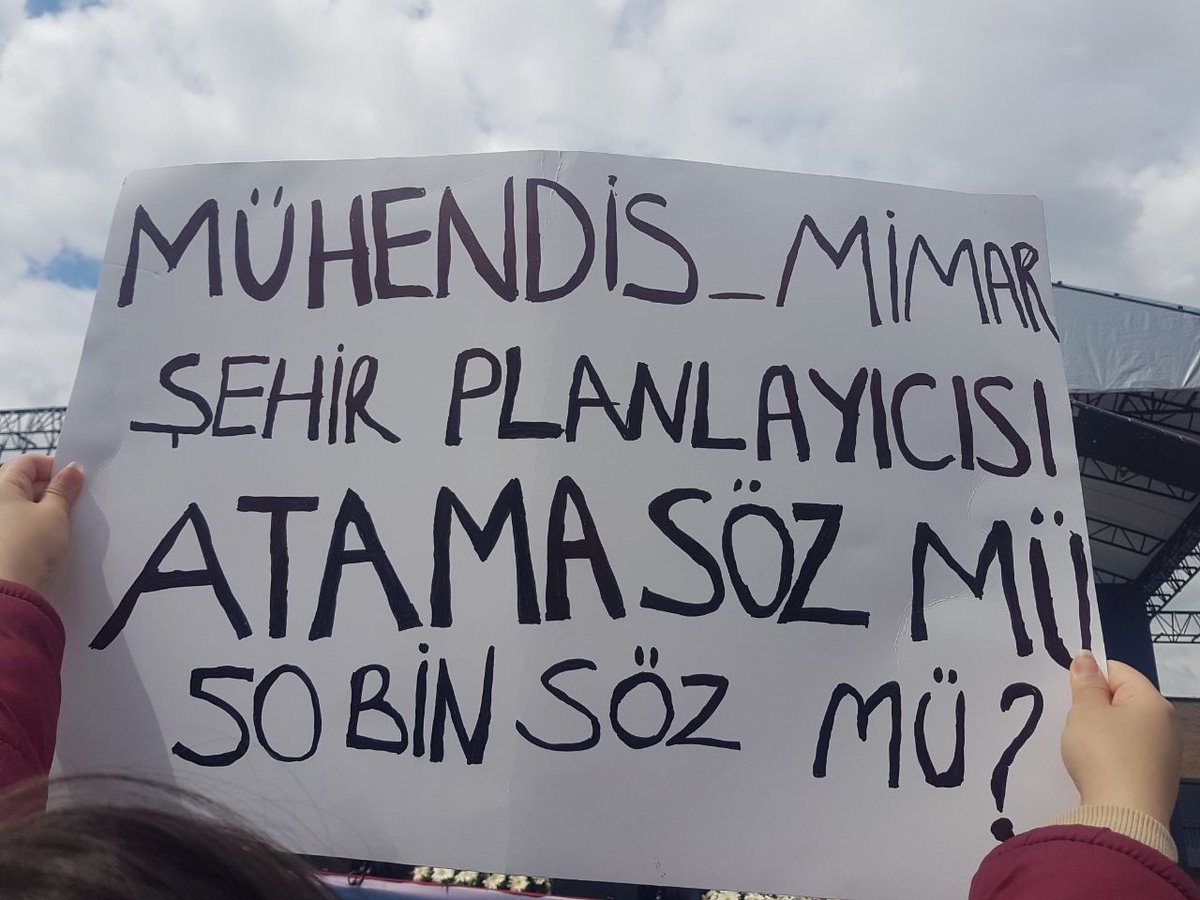 MÜHENDİS_MİMAR
ŞEHİR PLANLAYICISI
ATAMA SÖZ MÜ
50 BİN SÖZ MÜ?